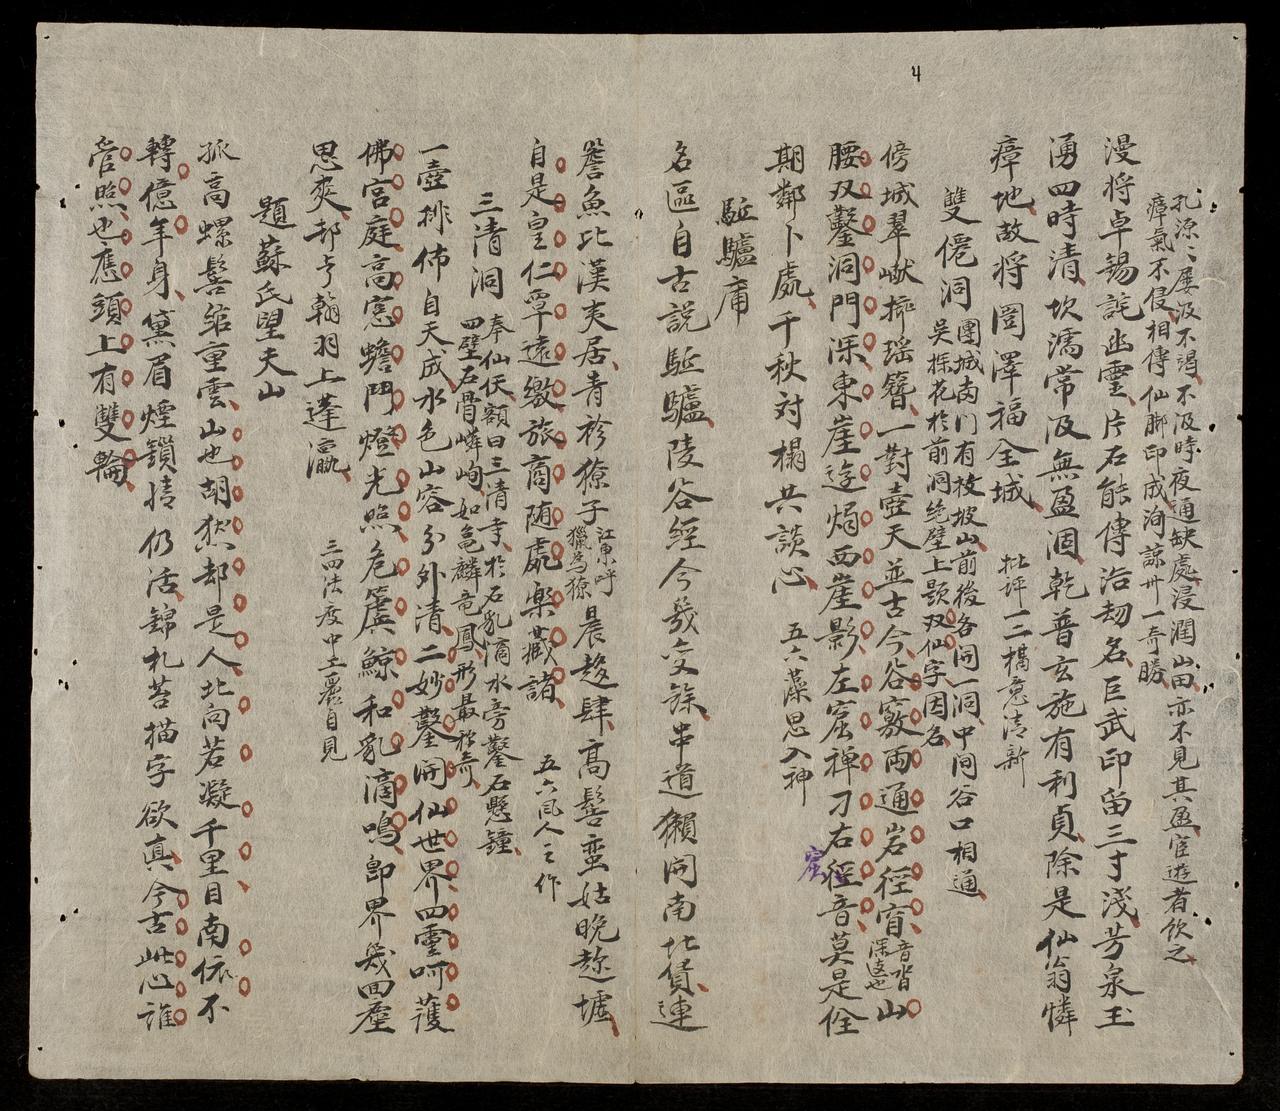 4
孔源〻屡汲不渴不汲時夜通缺處浸潤山田亦不見其盈宦遊者飲之
瘴氣不侵相傳仙脚印成洵諒州一奇勝
漫将卓錫詫幽靈片石能傳浩刼名巨武印留三寸淺芳泉玉
湧四時清坎濡常汲無盈涸乾普玄施有利貞除是仙翁憐
瘴地故将罔澤福全城
批評一二搨意清新
雙僊洞
團城南门有枚坡山前後各開一洞中间谷口相通
吳探花於前洞绝壁上題双仙字因名
傍城翠巘擲瑶簪一對壺天並古今谷竅両通岩徑窅
音沓
深遠也
山
腰双鑿洞門深東崖迩焗西崖影左窟禅刀右徑音莫是佺
窟
期鄰卜處千秋对榻共談心
五六藻思入神
駈驢庯
名區自古説駈驢陵谷經今㡬变餘串道獺開南北货連
詹魚比漢夷居青衫獠子
江東呼
獵為獠
晨趍肆高髻蛮姑晚趂墟
自是皇仁覃遠徼旅商随處楽藏諸
五六凨人之作
三清洞
奉仙伕額曰三清寺於石乳滴水旁鑿石懸鐘
四壁石骨嶙峋如龟麟竜鳳形最称奇
一壺排佈自天成水色山容分外清二妙鑿開仙世界四靈呵護
佛宮庭高窓蟾鬥燈光照危簴鯨和乳滴鳴卽界㡬回塵
思爽却亏翰羽上蓬瀛
三四法度中工麗自見
題蘇氏望夫山
孤高螺髻綰重雲山也胡愁却是人北向若凝千里目南依不
轉億年身黛眉煙鎖情仍活錦札苔描字欲真今古此心誰
管照也應頭上有雙輪